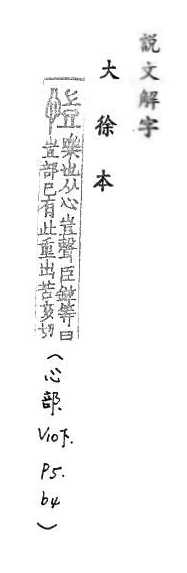 說文解字
大徐本
愷 樂也从心豈聲臣鉉等曰
豈部已有此重出苦亥切
(心部.
V10下.
P5.
b4)